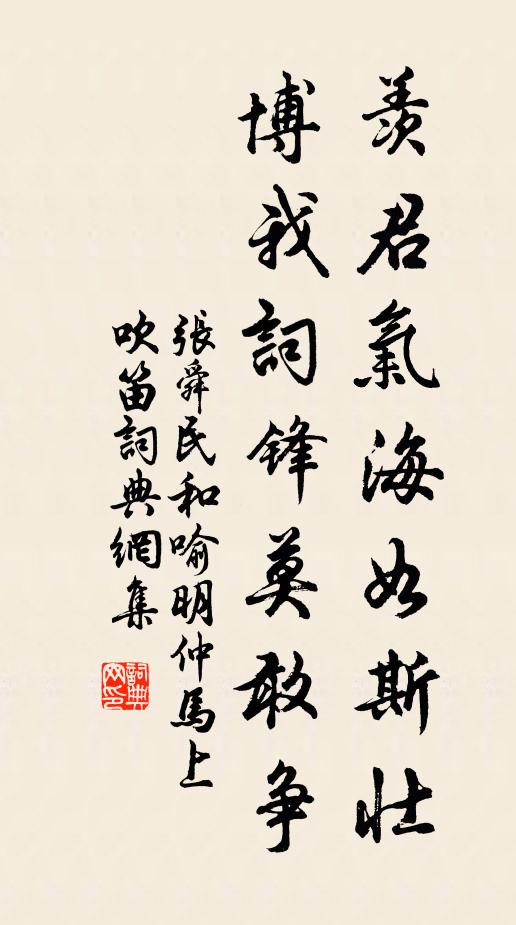 羨君氣海如斯壯
博我詞鋒莫敢爭
張舜民和喻明仲馬上
吹笛詞典網集
詞典
网印